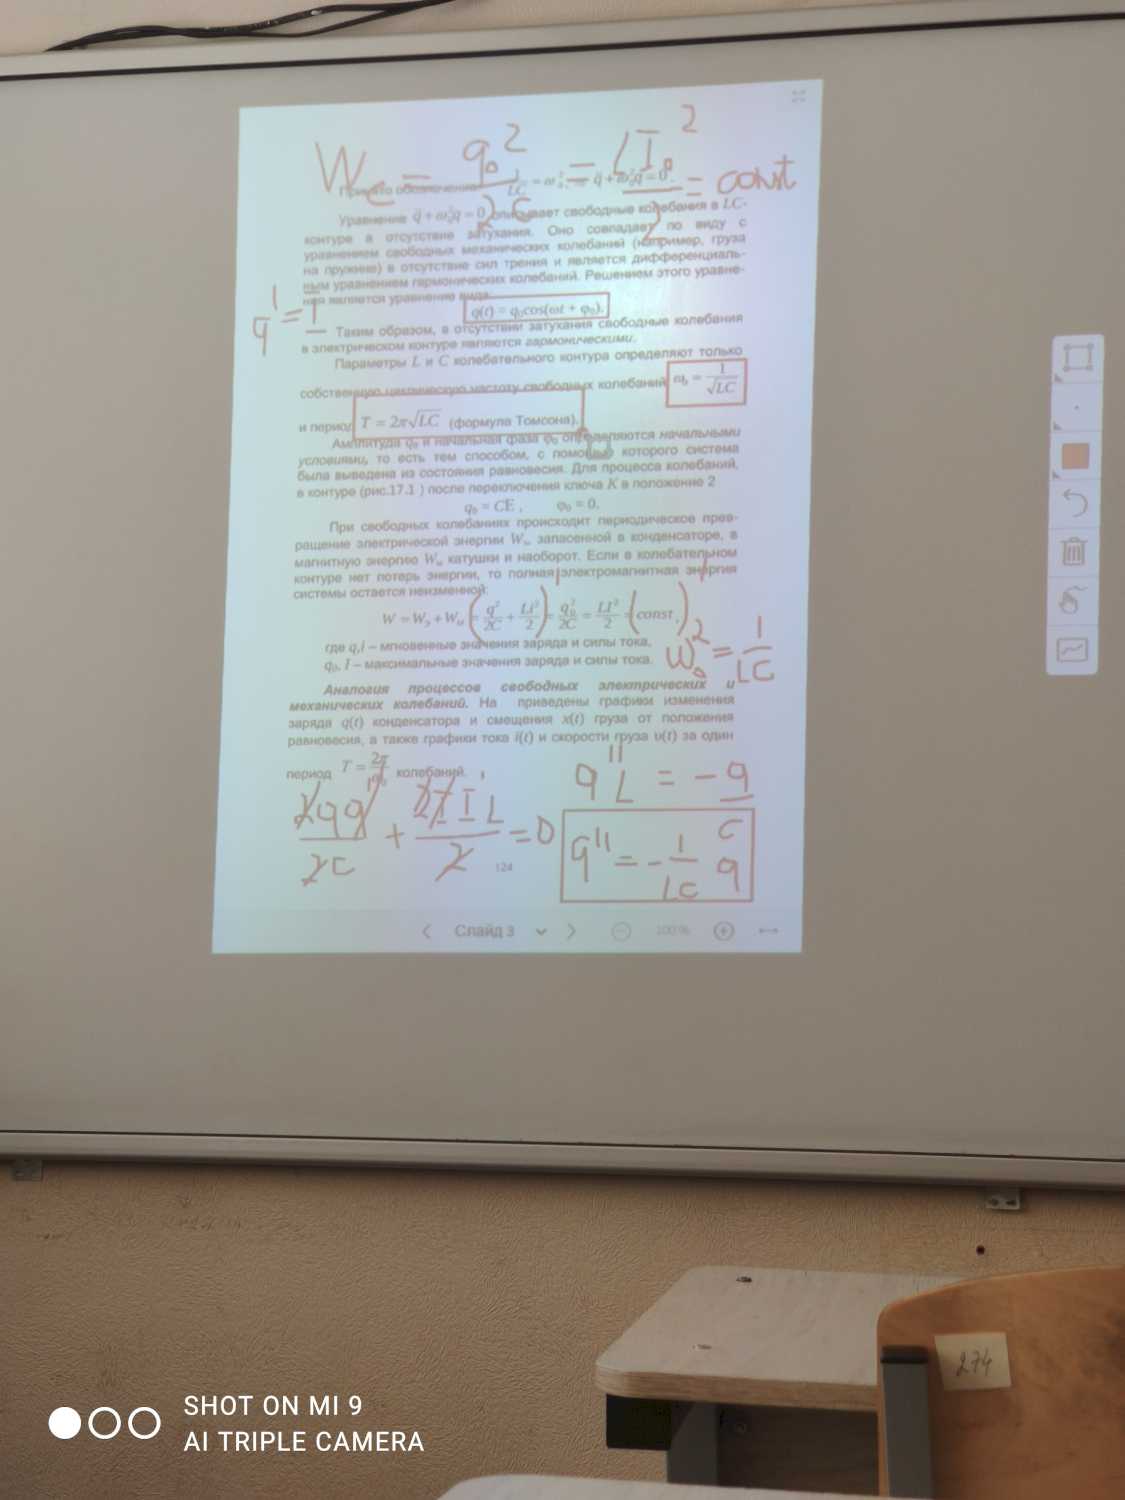 W_C = q₀²/2C = LI₀²/2 = const
Принято обозначение 1/LC = ω₀², q̈ + ω₀²q = 0.
Уравнение q̈ + ω₀²q = 0 описывает свободные колебания в LC-
контуре в отсутствие затухания. Оно совпадает по виду с
уравнением свободных механических колебаний (например, груза
на пружине) в отсутствие сил трения и является дифференциаль-
ным уравнением гармонических колебаний. Решением этого уравне-
ния является уравнение вида:
q' = I
q(t) = q₀cos(ωt + φ₀).
Таким образом, в отсутствии затухания свободные колебания
в электрическом контуре являются гармоническими.
Параметры L и C колебательного контура определяют только
собственную циклическую частоту свободных колебаний ω₀ = 1/√LC
и период T = 2π√LC (формула Томсона).
Амплитуда q₀ и начальная фаза φ₀ определяются начальными
условиями, то есть тем способом, с помощью которого система
была выведена из состояния равновесия. Для процесса колебаний,
в контуре (рис.17.1 ) после переключения ключа K в положение 2
q₀ = CE , φ₀ = 0.
При свободных колебаниях происходит периодическое прев-
ращение электрической энергии Wэ, запасенной в конденсаторе, в
магнитную энергию Wм катушки и наоборот. Если в колебательном
контуре нет потерь энергии, то полная электромагнитная энергия
системы остается неизменной:
W = Wэ + Wм = (q²/2C + Li²/2)' = q₀²/2C = LI²/2 = (const,)'
где q,i – мгновенные значения заряда и силы тока,
q₀, I – максимальные значения заряда и силы тока.
ω₀² = 1/LC
Аналогия процессов свободных электрических и
механических колебаний. На приведены графики изменения
заряда q(t) конденсатора и смещения x(t) груза от положения
равновесия, а также графики тока i(t) и скорости груза υ(t) за один
период T = 2π/ω₀ колебаний.
q''L = - q/C
2qq'/2C + 2II'L/2 = 0
q'' = - 1/LC q
124
Слайд 3
100 %
274
SHOT ON MI 9
AI TRIPLE CAMERA